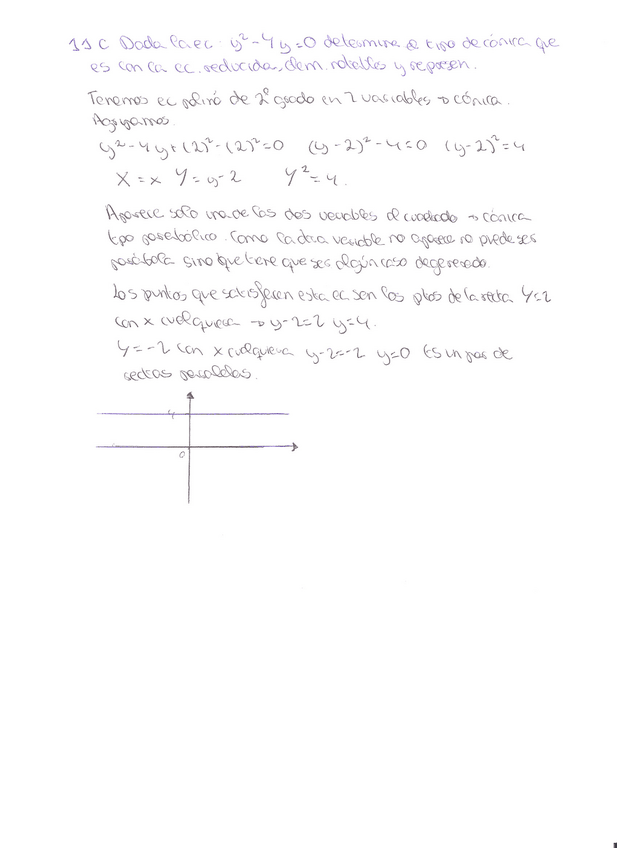 11 C Dada la ec. y²-4y=0 determina el tipo de cónica que
es con la ec. reducida, elem. notables y represen.
Tenemos ec polinó de 2º grado en 2 variables → cónica.
Agrupamos.
y²-4y+(2)²-(2)²=0 (y-2)²-4=0 (y-2)²=4
X=x Y=y-2 Y²=4.
Aparece solo una de las dos variables al cuadrado → cónica
tipo parabólico. Como la otra variable no aparece no puede ser
parábola sino que tiene que ser algún caso degenerado.
Los puntos que satisfacen esta ec son los ptos de la recta Y=2
con x cualquiera → y-2=2 y=4.
Y=-2 con x cualquiera y-2=-2 y=0 Es un par de
rectas paralelas.
4
0